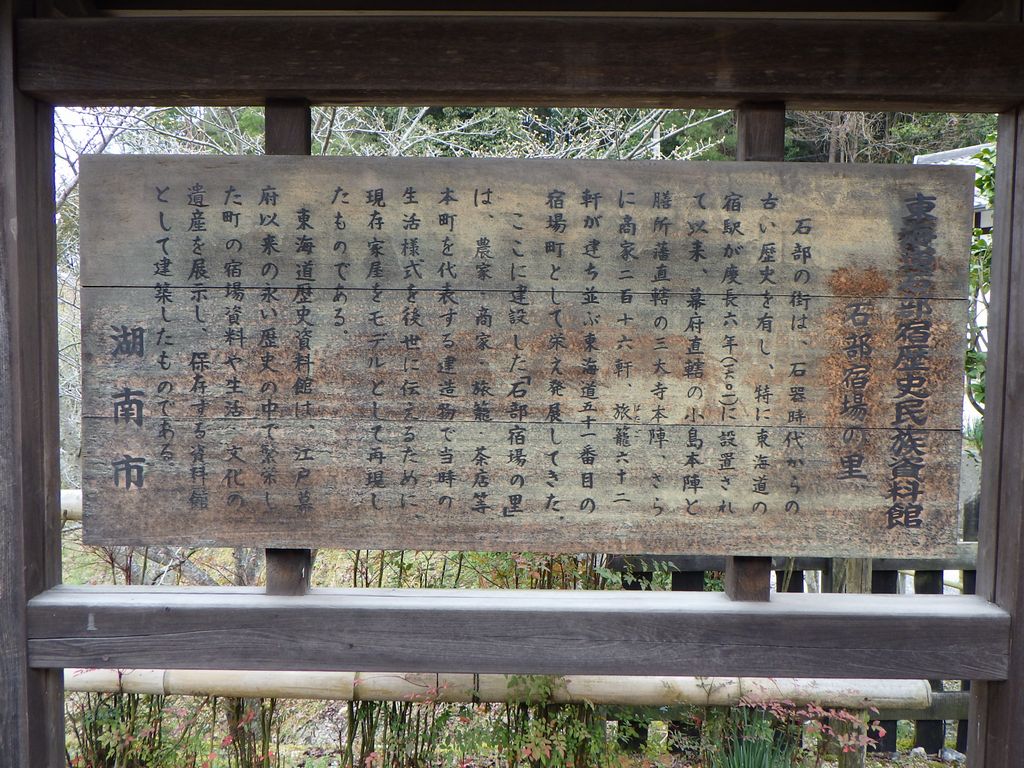 東海道石部宿歴史民族資料館
石部宿場の里
石部の街は、石器時代からの
古い歴史を有し、特に東海道の
宿駅が慶長六年(一六〇一)に設置され
て以来、幕府直轄の小島本陣と
膳所藩直轄の三大寺本陣、さら
に商家二百十六軒、旅籠六十二
はたご
軒が建ち並ぶ東海道五十一番目の
宿場町として栄え発展してきた。
ここに建設した「石部宿場の里」
は、農家・商家・旅籠・茶店等
本町を代表する建造物で当時の
生活様式を後世に伝えるために、
現存家屋をモデルとして再現し
たものである。
東海道歴史資料館は、江戸幕
府以来の永い歴史の中で繁栄し
た町の宿場資料や生活、文化の
遺産を展示し、保存する資料館
として建築したものである。
湖南市